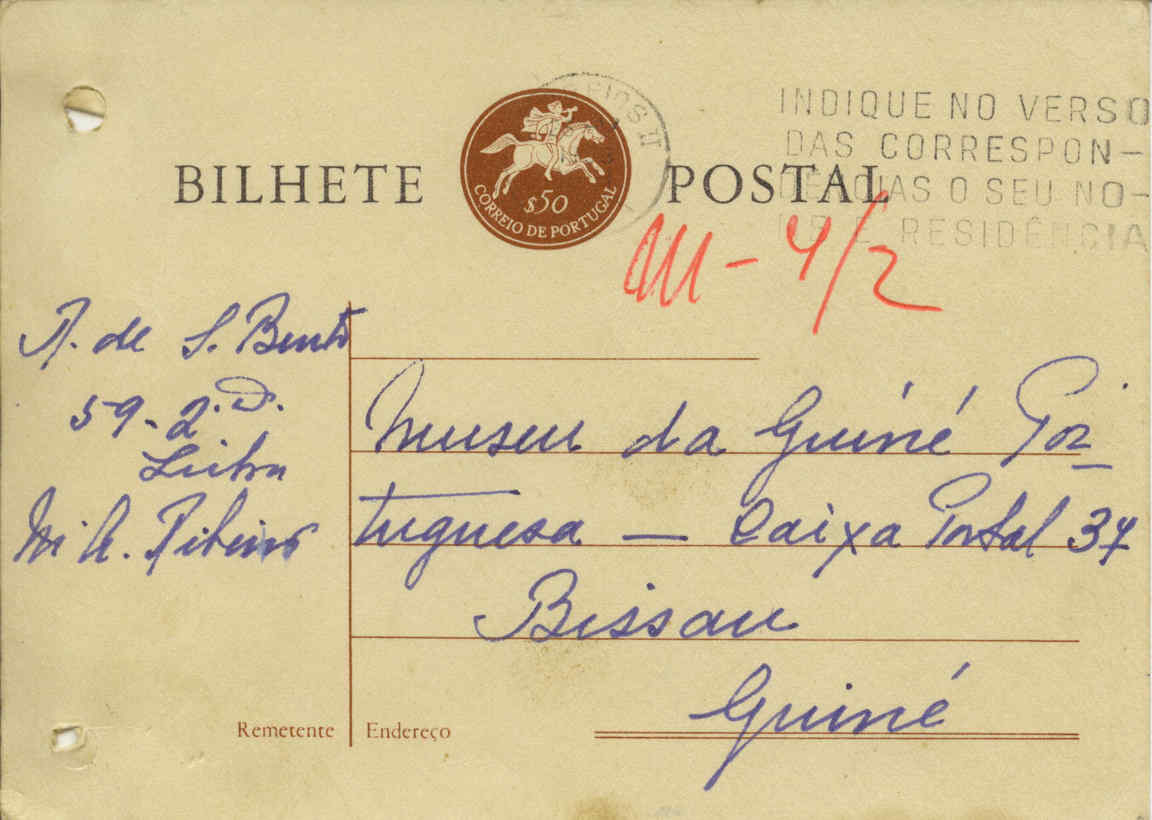 BILHETE POSTAL
$50
CORREIO DE PORTUGAL
INDIQUE NO VERSO
DAS CORRESPON-
DENCIAS O SEU NO-
ME E RESIDÊNCIA
M - 4/2
R. de S. Bento
59-2.º D.
Lisboa
M. A. Ribeiro
Museu da Guiné Por
tuguesa — Caixa Postal 37
Bissau
Guiné
Remetente
Endereço